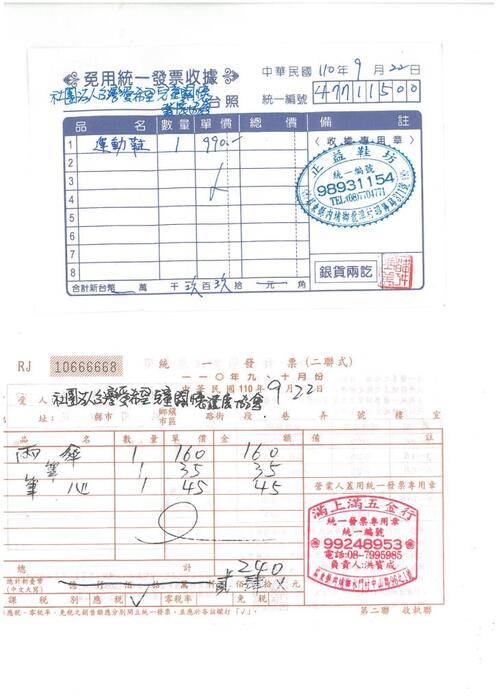 免用統一發票收據
中華民國 110 年 9 月 22 日
台照
統一編號 47711500
品名 數量 單價 總價 備註
1 運動鞋 1 990.-
〈收據專用章〉
2
3
4
5
6
7
8
正益鞋坊
統一編號
98931154
TEL:(08)7704771
銀貨兩訖
合計新台幣 萬 千 玖 百 玖 拾 元 角
RJ 10666668 統一發票(二聯式)
一一〇年九、十月份
中華民國110年 9月 22日
買受人:
地址: 縣市 鄉鎮市區 路街 段 巷 弄 號 樓 室
品名 數量 單價 金額 備註
雨傘 1 160 160
筆 1 35 35
筆心 1 45 45
營業人蓋用統一發票專用章
滿上滿五金行
統一發票專用章
99248953
電話:08-7995985
負責人:洪寶成
總計 240
總計新臺幣
(中文大寫)
貳 佰 肆 拾 元
課稅別 應稅 ✓ 零稅率 免稅
※應稅、零稅率、免稅之銷售額應分別開立統一發票,並應於各該欄打「✓」。
第二聯 收執聯